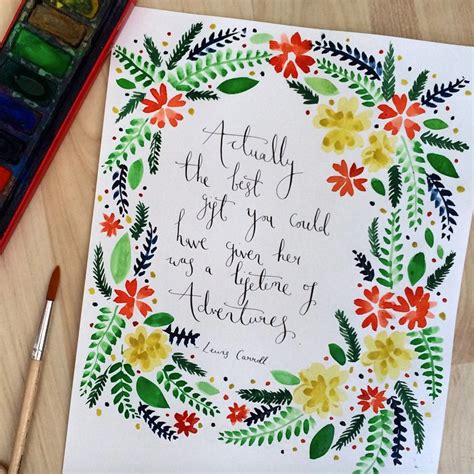 Actually
the best
gift you could
have given her
was a lifetime of
Adventures
Lewis Carroll